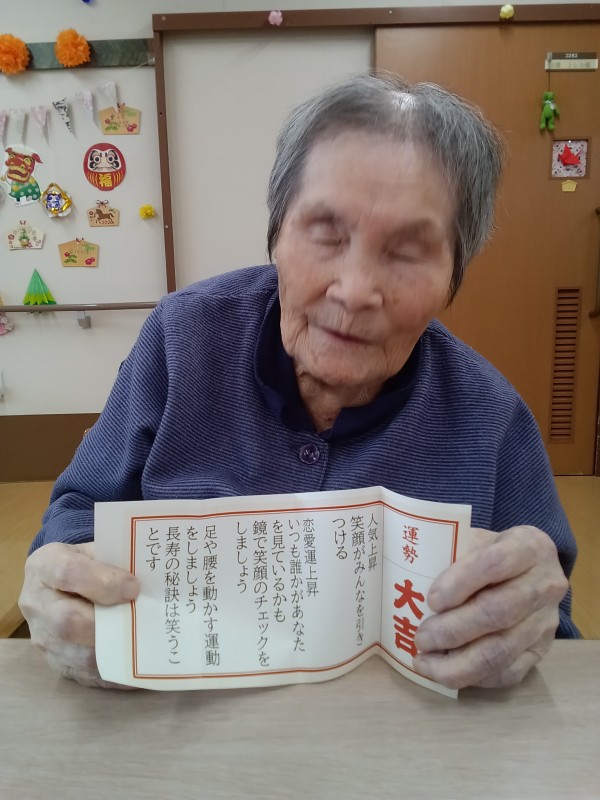 運勢
大吉
人気上昇
笑顔がみんなを引き
つける
恋愛運上昇
いつも誰かがあなた
を見ているかも
鏡で笑顔のチェックを
しましょう
足や腰を動かす運動
をしましょう
長寿の秘訣は笑うこ
とです
福